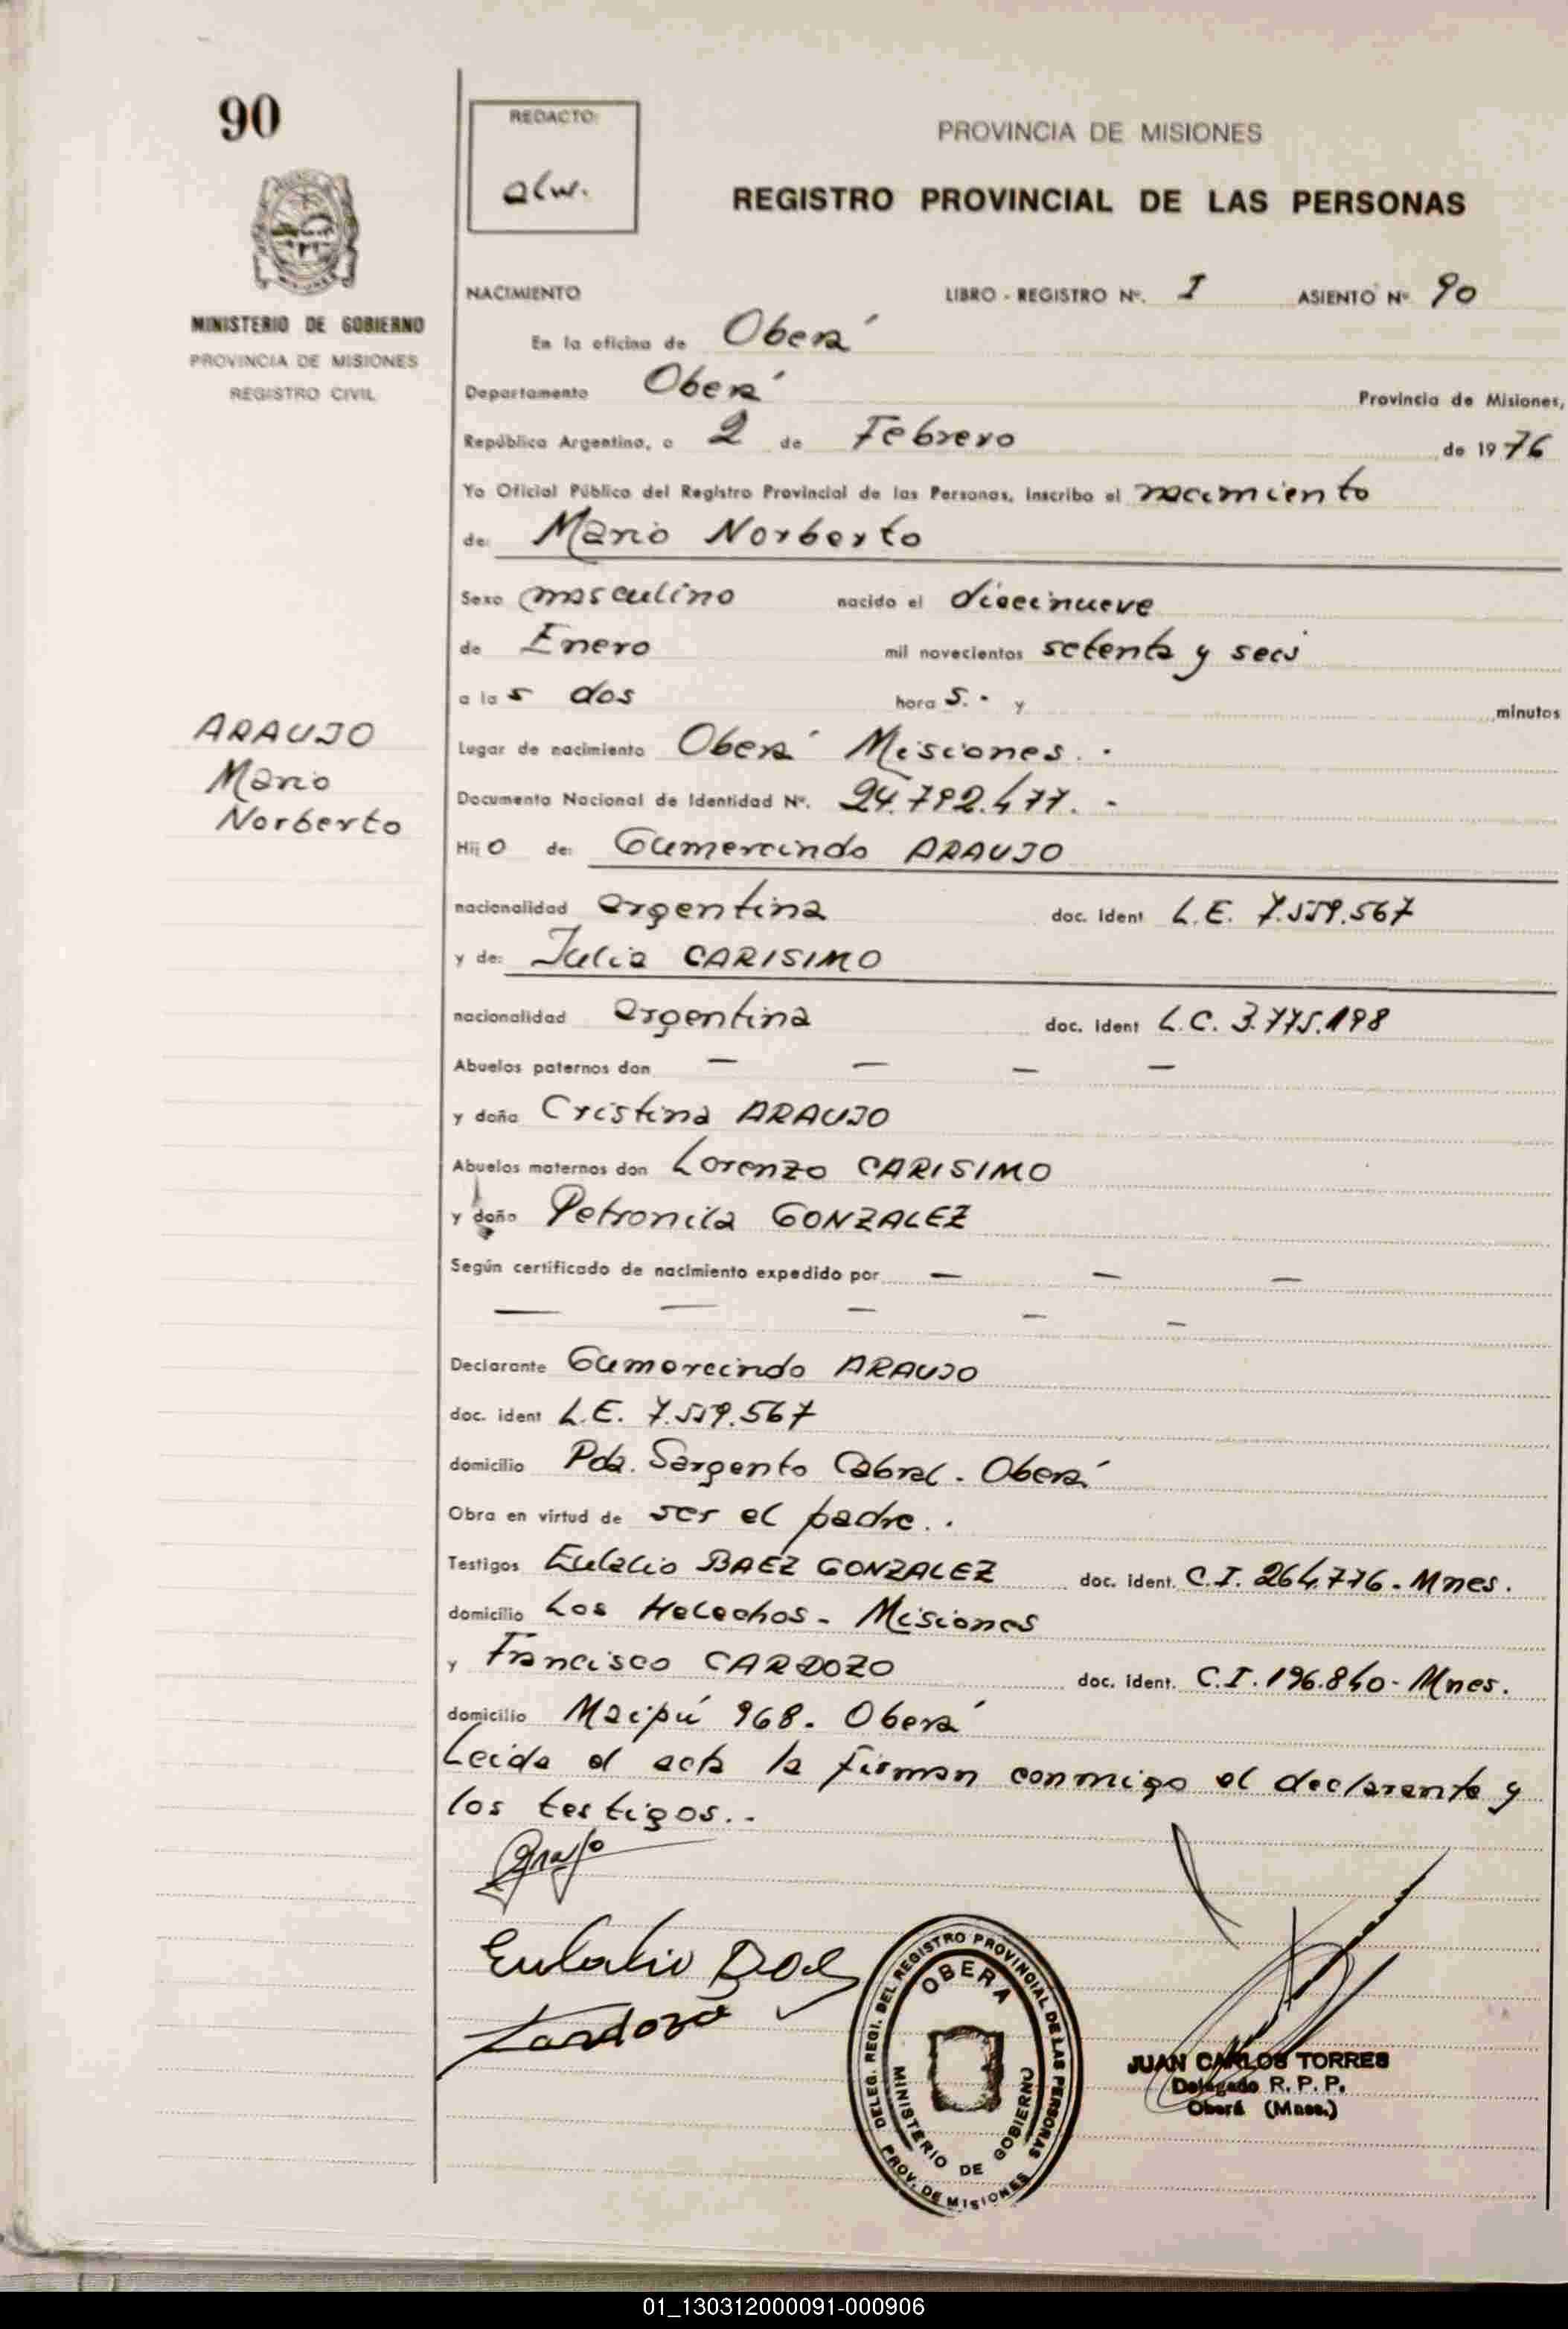 90
REDACTO:
alw.
PROVINCIA DE MISIONES
REGISTRO PROVINCIAL DE LAS PERSONAS
MINISTERIO DE GOBIERNO
PROVINCIA DE MISIONES
REGISTRO CIVIL
NACIMIENTO LIBRO - REGISTRO Nº. I ASIENTO Nº 90
En la oficina de Oberá
Departamento Oberá Provincia de Misiones,
República Argentina, a 2 de Febrero de 1976
Yo Oficial Público del Registro Provincial de las Personas, inscribo el nacimiento
de: Mario Norberto
Sexo masculino nacido el diecinueve
de Enero mil novecientos setenta y seis
a las dos horas.- y minutos
ARAUJO
Mario
Norberto
Lugar de nacimiento Oberá Misiones.-
Documento Nacional de Identidad Nº. 24.792.477.-
Hijo de: Gumercindo ARAUJO
nacionalidad argentina doc. ident L.E. 7.559.567
y de: Julia CARISIMO
nacionalidad argentina doc. ident L.C. 3.775.198
Abuelos paternos don — — — —
y doña Cristina ARAUJO
Abuelos maternos don Lorenzo CARISIMO
y doña Petronila GONZALEZ
Según certificado de nacimiento expedido por — — —
— — — — —
Declarante Gumercindo ARAUJO
doc. ident L.E. 7.559.567
domicilio Pda. Sargento Cabral - Oberá
Obra en virtud de ser el padre..
Testigos Eulalio BAEZ GONZALEZ doc. ident. C.I. 264.776 - Mnes.
domicilio Los Helechos - Misiones
y Francisco CARDOZO doc. ident. C.I. 196.840 - Mnes.
domicilio Maipú 968 - Oberá
Leida el acta la firman conmigo el declarante y
los testigos..
Eulalio
DELEG. REGI. DEL REGISTRO PROVINCIAL DE LAS PERSONAS
OBERA
MINISTERIO DE GOBIERNO
PROV. DE MISIONES
JUAN CARLOS TORRES
Delegado R. P. P.
Oberá (Mnes.)
01_130312000091-000906